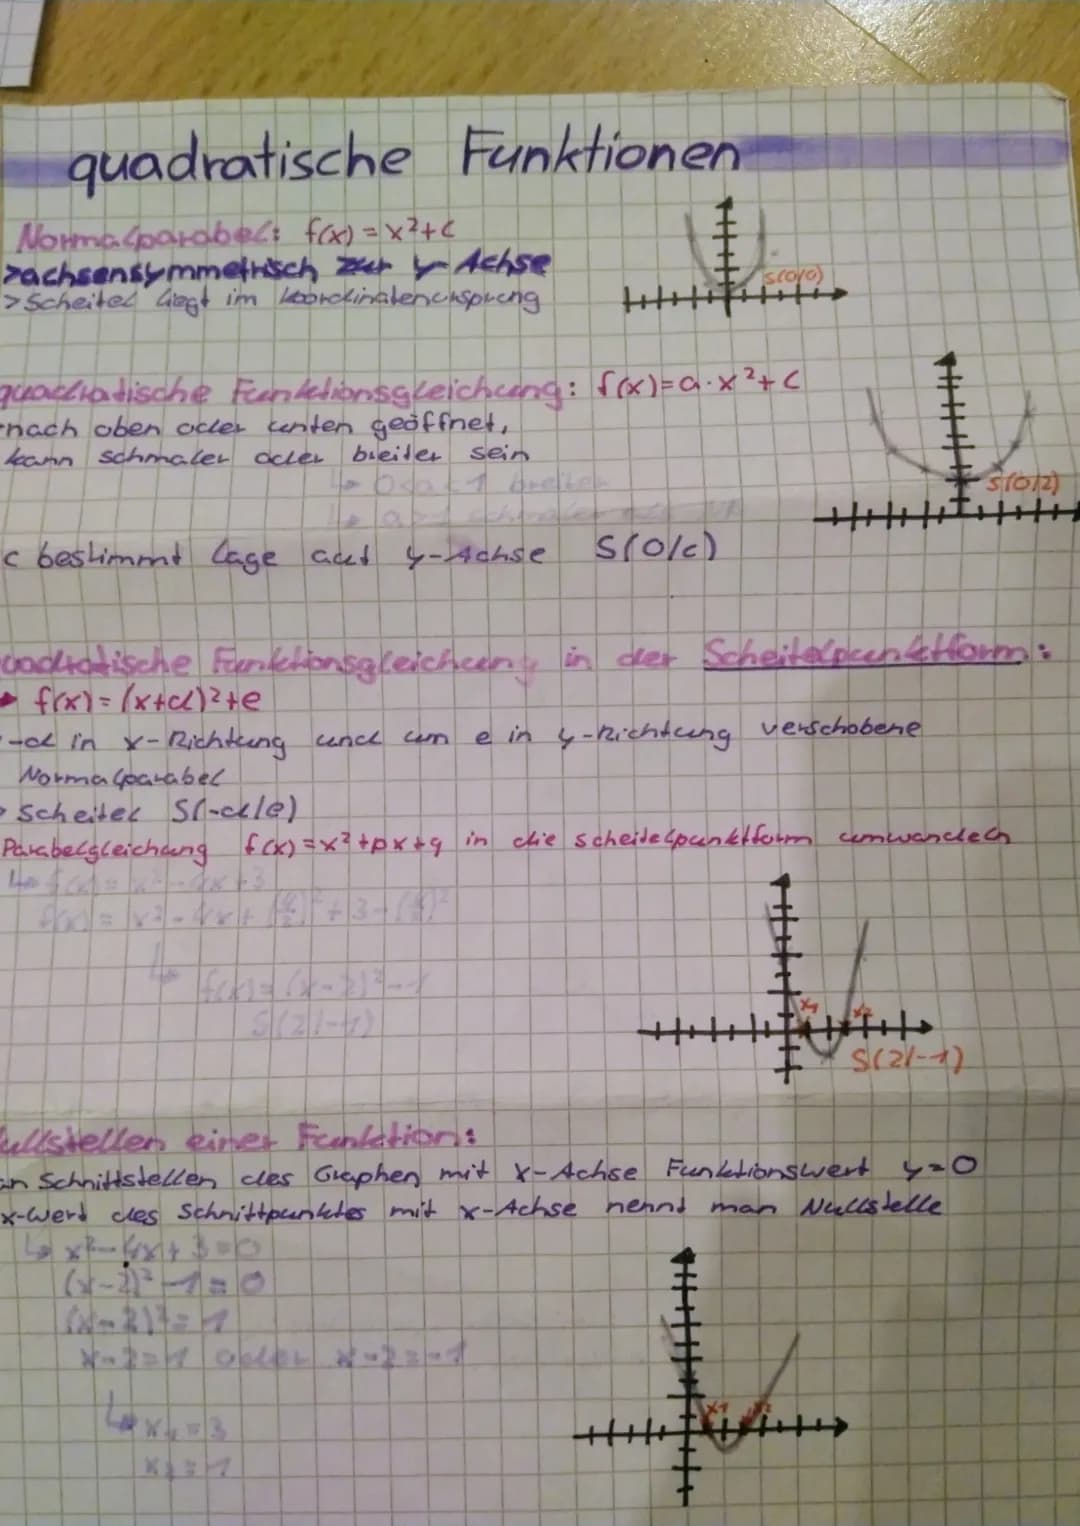 quadratische Funktionen
Normalparabel: f(x) = x²+c
>achsensymmetrisch zur y-Achse
>Scheitel liegt im Koordinatenursprung
S(0/0)
quadratische Funktionsgleichung: f(x)=a·x²+c
-nach oben oder unten geöffnet,
kann schmaler oder breiter sein
↳ 0<a<1 breiter
↳ a>1 schmaler
S(0/2)
c bestimmt Lage auf y-Achse S(0/c)
quadratische Funktionsgleichung in der Scheitelpunktform:
f(x) = (x+d)²+e
-d in x-Richtung und um e in y-Richtung verschobene
Normalparabel
Scheitel S(-d/e)
Parabelgleichung f(x) = x²+px+q in die scheitelpunktform umwandeln
↳ f(x) = x²-4x+3
f(x) = x²-4x+(4/2)²+3-(4/2)²
↳ f(x) = (x-2)²-1
S(2/-1)
x1 x2
S(2/-1)
Nullstellen einer Funktion:
an Schnittstellen des Graphen mit x-Achse Funktionswert y=0
x-Wert des Schnittpunktes mit x-Achse nennt man Nullstelle
↳ x²-4x+3=0
(x-2)²-1=0
(x-2)²=1
x-2=1 oder x-2=-1
↳ x1=3
x2=1
x1 x2